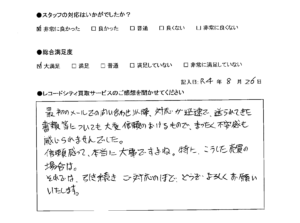 ●スタッフの対応はいかがでしたか？
☑ 非常に良かった □ 良かった □ 普通 □ 良くない □ 非常に良くない
●総合満足度
☑ 大満足 □ 満足 □ 普通 □ 満足していない □ 非常に満足していない
記入日 R4 年 8 月 26 日
●レコードシティ買取サービスのご感想をお聞かせください
最初のメールでの問い合わせ以降、対応が迅速で、送られてきた
書類等についても大変信頼のおけるもので、まったく不安感も
感じられませんでした。
信頼感って、本当に大事ですよね。特に、こうした売買の
場合は。
それでは、引き続きご対応のほど、どうぞよろしくお願い
いたします。